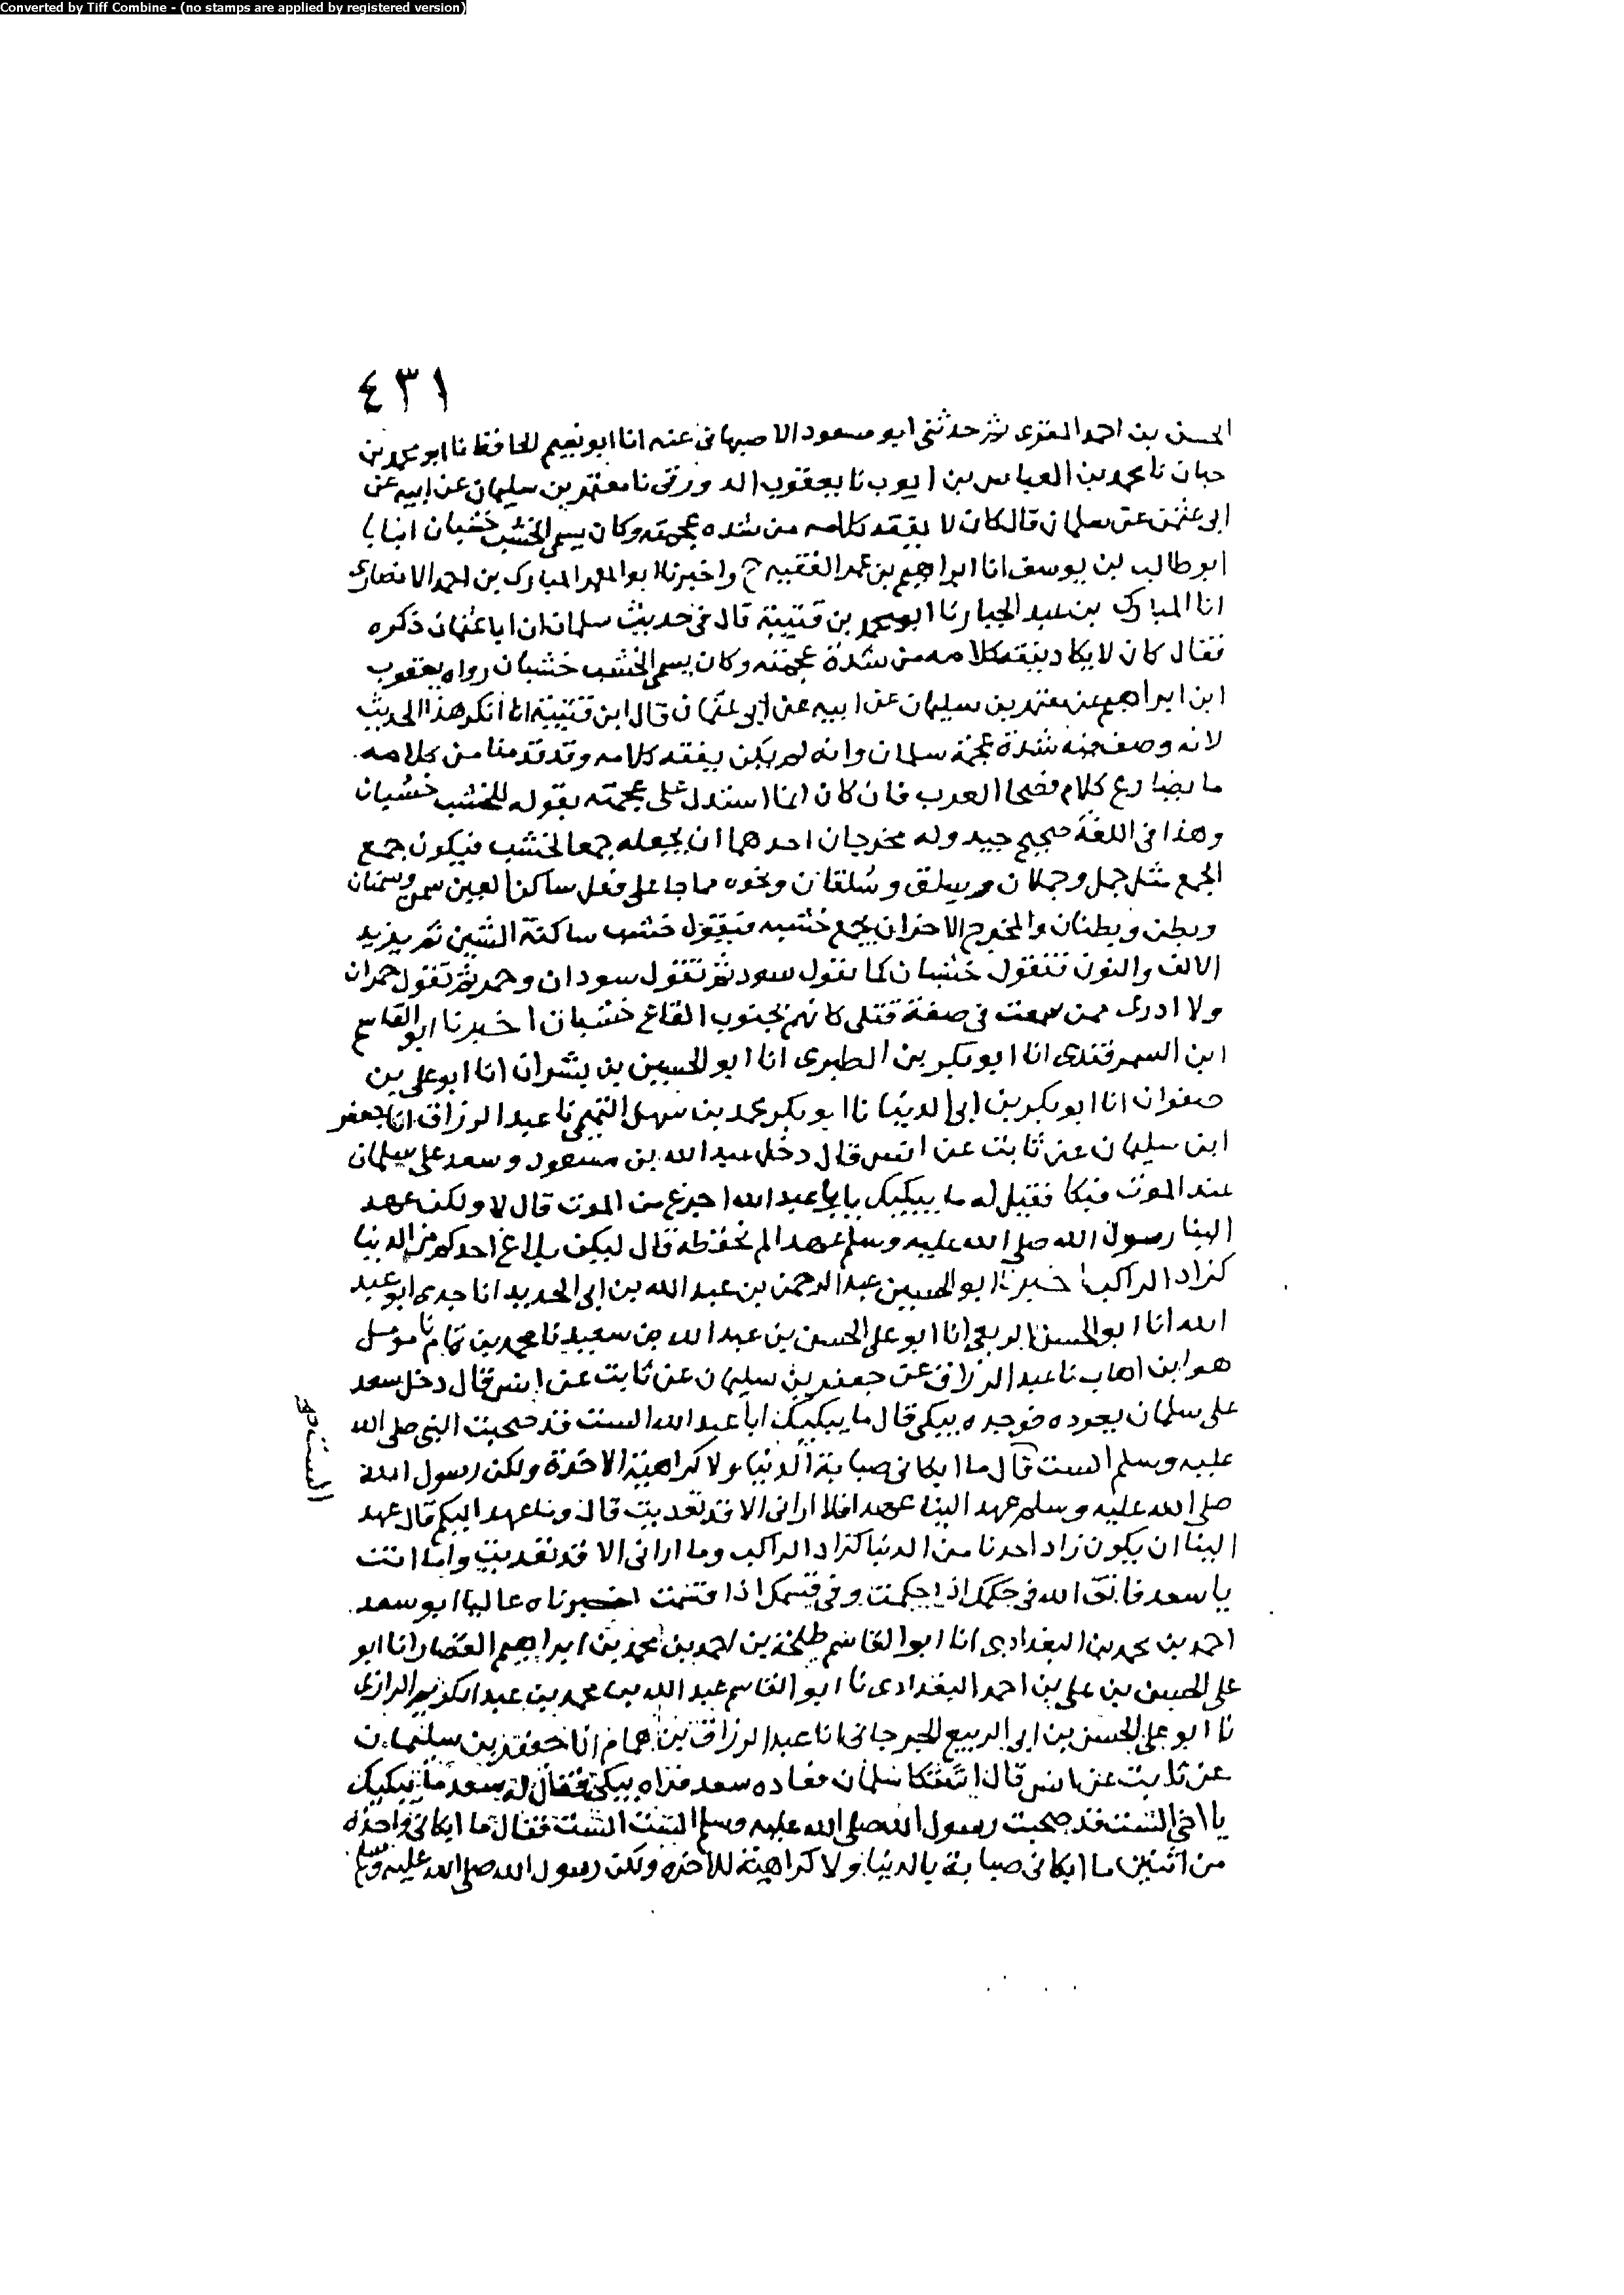 Converted by Tiff Combine - (no stamps are applied by registered version)
٤٣١
الحسن بن احمد المقرى ثم حدثنى ابو مسعود الاصبهانى عنه انا ابو نعيم الحافظ نا ابو محمد بن
حبان نا محمد بن العباس بن ايوب نا يعقوب الدورقى نا معتمر بن سليمان عن ابيه عن
ابى عثمن عن سلمان قال كان لا يفقه كلامه من شده عجمته وكان يسمى الخشب خشبان
ابو طالب بن يوسف انا ابراهيم بن عمر الفقيه ح واخبرنا ابو المعمر المبارك بن احمد الانصارى
انا المبارك بن عبد الجبار نا ابو محمد بن قتيبة قال فى حديث سلمان ان ابا عثمان ذكره
فقال كان لا يكاد يفقه كلامه من شدة عجمته وكان يسمى الخشب خشبان رواه يعقوب
ابن ابراهيم عن معتمر بن سليمان عن ابيه عن ابى عثمان قال ابن قتيبة انا انكر هذا الحديث
لانه وصف فيه شدة عجمة سلمان وانه لم يكن يفقه كلامه وقد قدمنا من كلامه
ما يضارع كلام فصحا العرب فان كان انما استدل على عجمته بقوله للخشب خشبان
وهذا فى اللغة صحيح جيد وله مخرجان احدهما ان يجعله جمعا لخشب فيكون جمع
الجمع مثل جمل وجملان وسلق وسلقان ونحوه مما جا على فعل ساكن العين سمن وسمنان
وبطن وبطنان والمخرج الاخر ان يجمع خشبه فيقول خشب ساكنة الشين ثم يزيد
الالف والنون فتقول خشبان كما تقول سود ثم تقول سودان وحمر ثم تقول حمران
ولا ادرى ممن سمعت فى صفة قتلى كانهم بجنوب القاع خشبان اخبرنا ابو القاسم
ابن السمرقندى انا ابو بكر بن الطبرى انا ابو الحسين بن بشران انا ابو على بن
صفوان انا ابو بكر بن ابى الدنيا نا ابو بكر محمد بن سهل التميمى نا عبد الرزاق انا جعفر
ابن سليمان عن ثابت عن انس قال دخل عبد الله بن مسعود وسعد على سلمان
عند الموت فبكا فقيل له ما يبكيك يا ابا عبد الله اجزع من الموت قال لا ولكن عهد
الينا رسول الله صلى الله عليه وسلم عهدا لم نحفظه قال ليكن بلاغ احدكم من الدنيا
كزاد الراكب اخبرنا ابو الحسين عبد الرحمن بن عبد الله بن ابى الحديد انا جدى ابو عبد
الله انا ابو الحسن الربعى انا ابو على الحسن بن عبد الله بن سعيد نا محمد بن تمام نا مؤمل
هو ابن اهاب نا عبد الرزاق عن جعفر بن سليمان عن ثابت عن انس قال دخل سعد
على سلمان يعوده فوجده يبكى قال ما يبكيك ابا عبد الله الست قد صحبت النبى صلى الله
عليه وسلم الست قال ما ابكانى صبابة الدنيا ولا كراهية الاخرة ولكن رسول الله
الست
صلى الله عليه وسلم عهد الينا عهدا فلا ارانى الا قد تعديت قال وما عهد اليكم قال عهد
الينا ان يكون زاد احدنا من الدنيا كزاد الراكب وما ارانى الا قد تعديت واما انت
يا سعد فاتق الله فى حكمك اذا حكمت وفى قسمك اذا قسمت اخبرناه عاليا ابو سعد
احمد بن محمد بن البغدادى انا ابو القاسم طلحة بن احمد بن محمد بن ابراهيم القصار انا ابو
على الحسين بن على بن احمد البغدادى نا ابو القاسم عبد الله بن محمد بن عبد الكريم الرازى
نا ابو على الحسن بن ابى الربيع الجرجانى انا عبد الرزاق بن همام انا جعفر بن سليمان
عن ثابت عن انس قال اشتكا سلمان فعاده سعد فراه يبكى فقال له سعد ما يبكيك
يا اخى الست قد صحبت رسول الله صلى الله عليه وسلم الست الست فقال ما ابكانى واحدة
من اثنتين ما ابكانى صبابة بالدنيا ولا كراهية للاخرة ولكن رسول الله صلى الله عليه وسلم